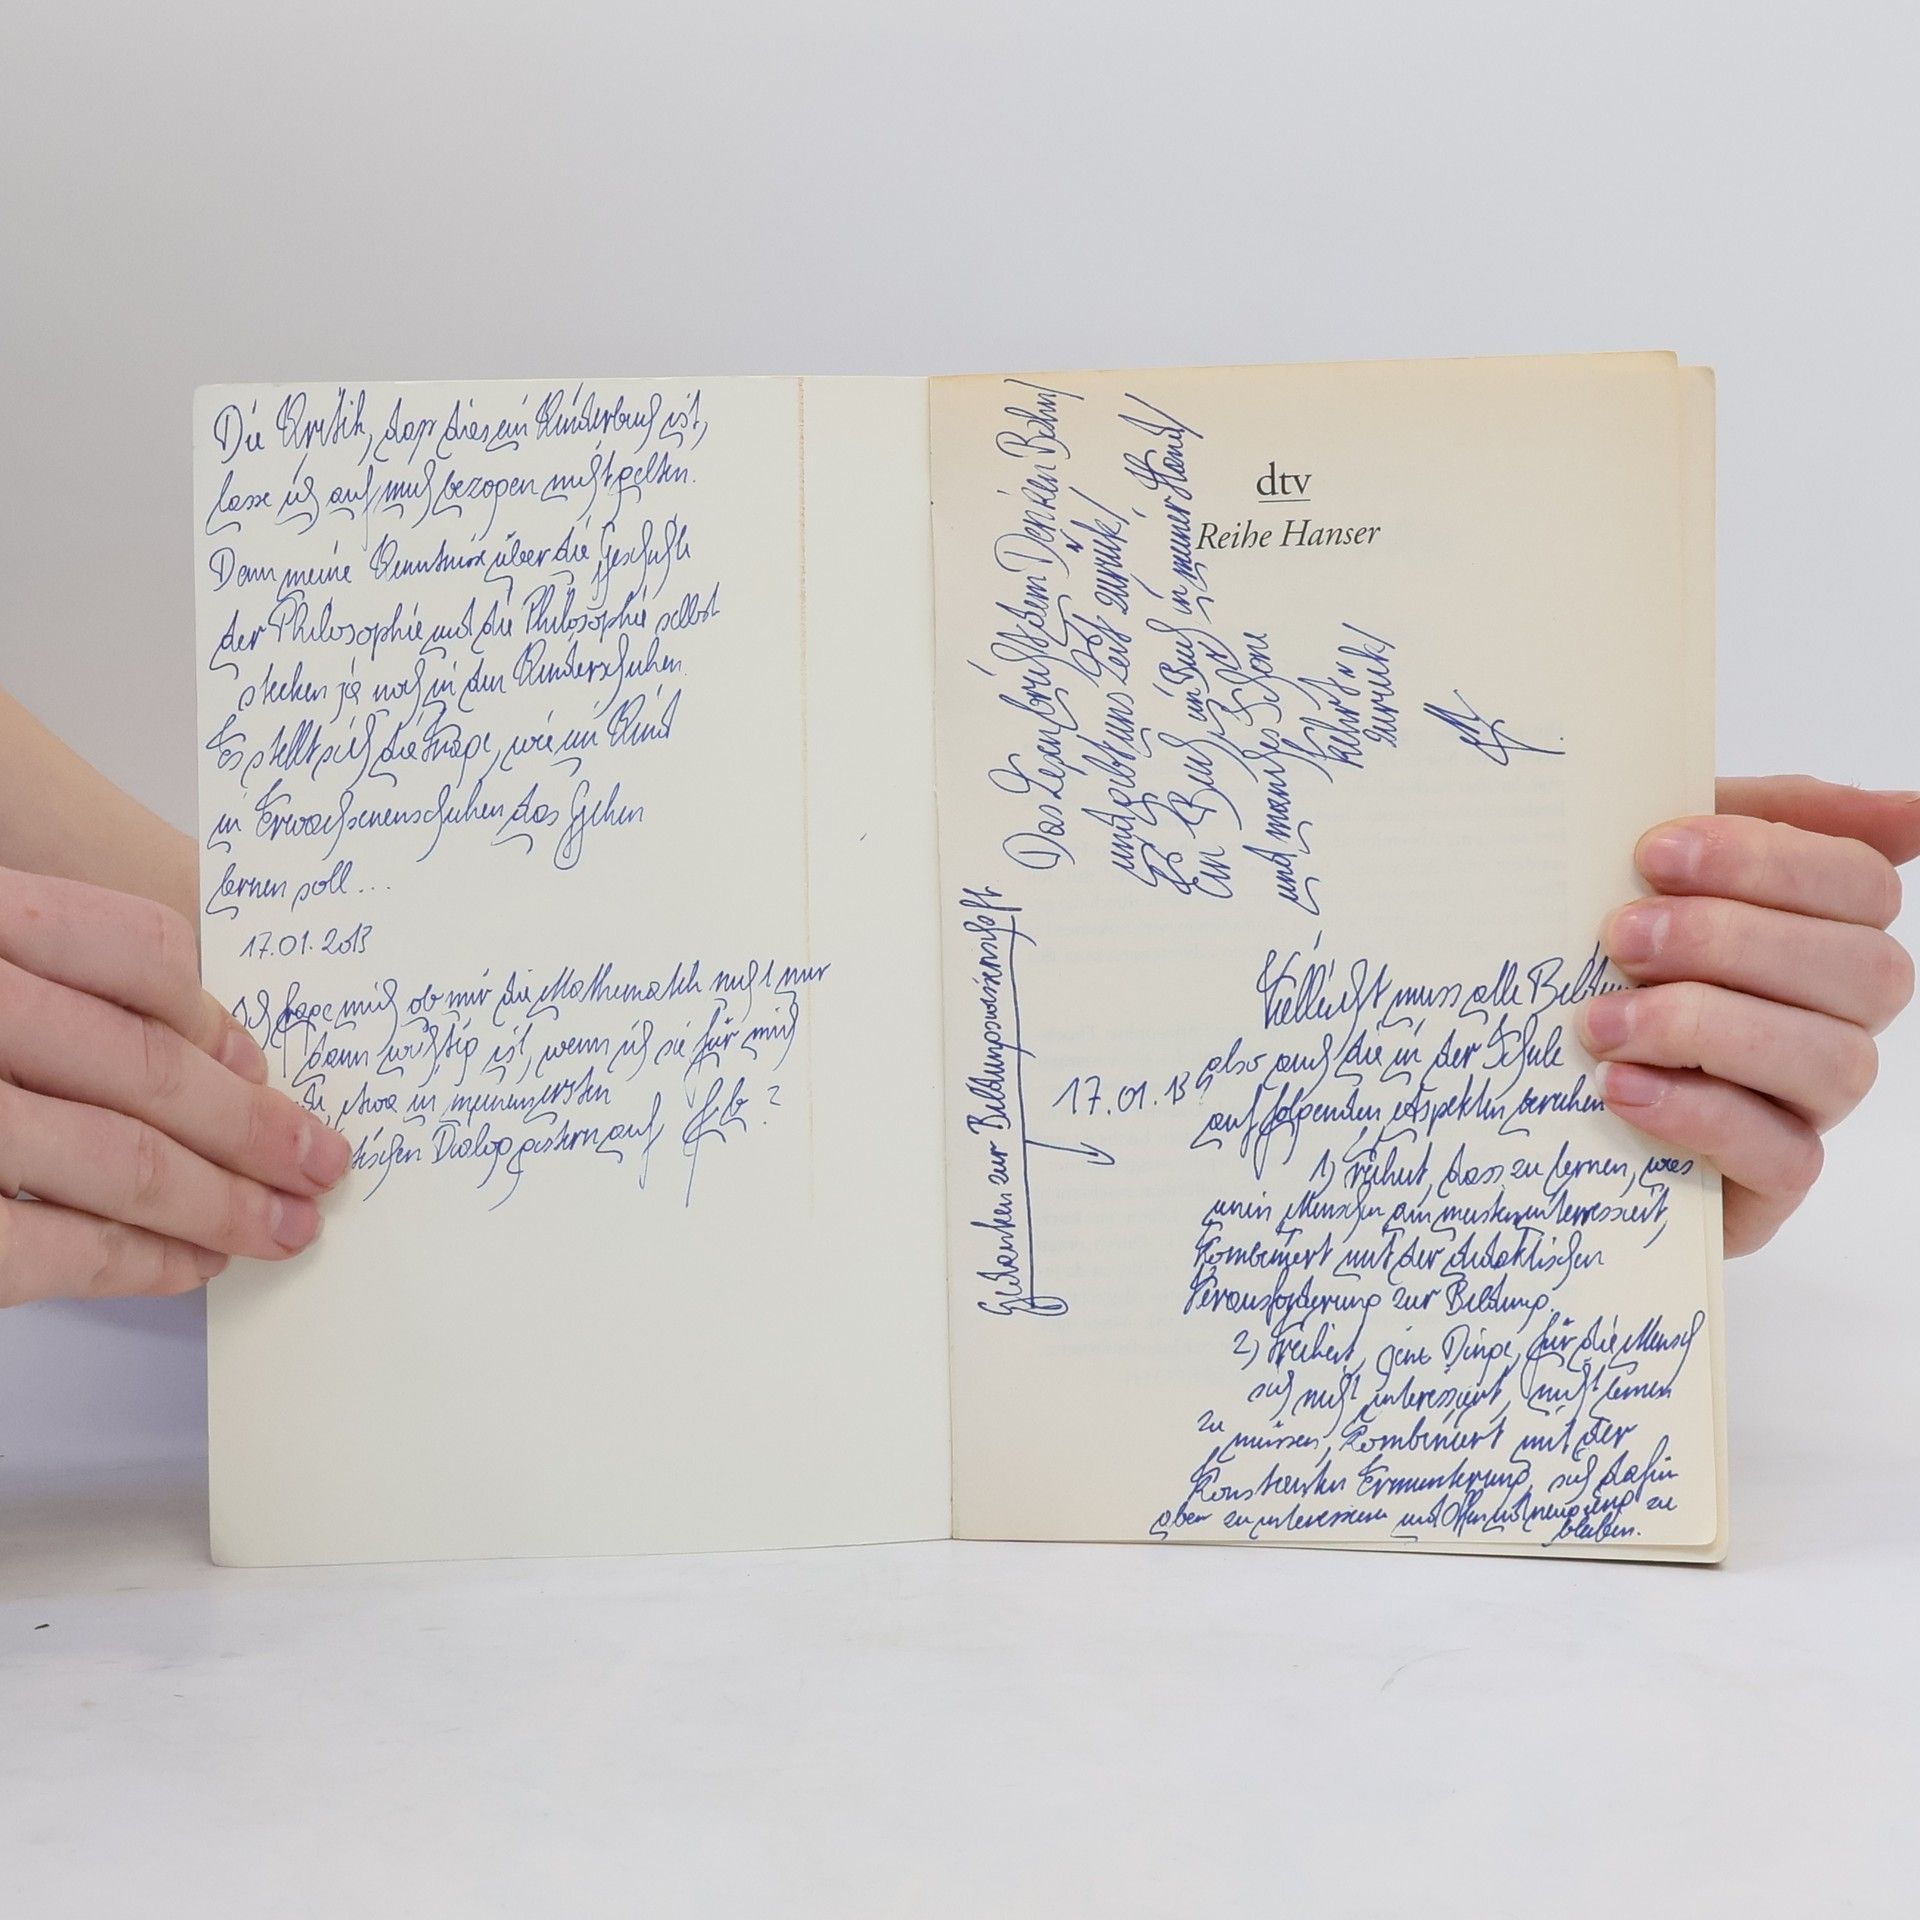 Die Kritik, dass dies ein Kinderbuch ist,
lasse ich auf mich bezogen nicht gelten.
Denn meine Kenntnisse über die Geschichte
der Philosophie und die Philosophie selbst
stecken ja noch in den Kinderschuhen.
Es stellt sich die Frage, wie ein Kind
in Erwachsenenschuhen das Gehen
lernen soll...
17.01.2013
Ich frage mich ob mir die Mathematik nicht nur
dann wichtig ist, wenn ich sie für mich
etwa in meinem ersten
Dialog gestern auf
dtv
Reihe Hanser
Das Lesen bricht dem Denken Bahn/
und gibt uns Zeit zurück/
Ein Buch ein Buch in meiner Hand/
und manches Schöne
kehrt
zurück/
Gedanken zur Bildungswissenschaft
17.01.13
Vielleicht muss alle Bildung
also auch die in der Schule
auf folgenden Aspekten beruhen
1) Freiheit, dass zu lernen, was
einen Menschen am meisten interessiert,
kombiniert mit der didaktischen
Herausforderung zur Bildung.
2) Freiheit, jene Dinge, für die Mensch
sich nicht interessiert, nicht lernen
zu müssen, kombiniert mit der
konstanten Ermunterung, sich dafür
aber zu interessieren und offen und neugierig zu
bleiben.